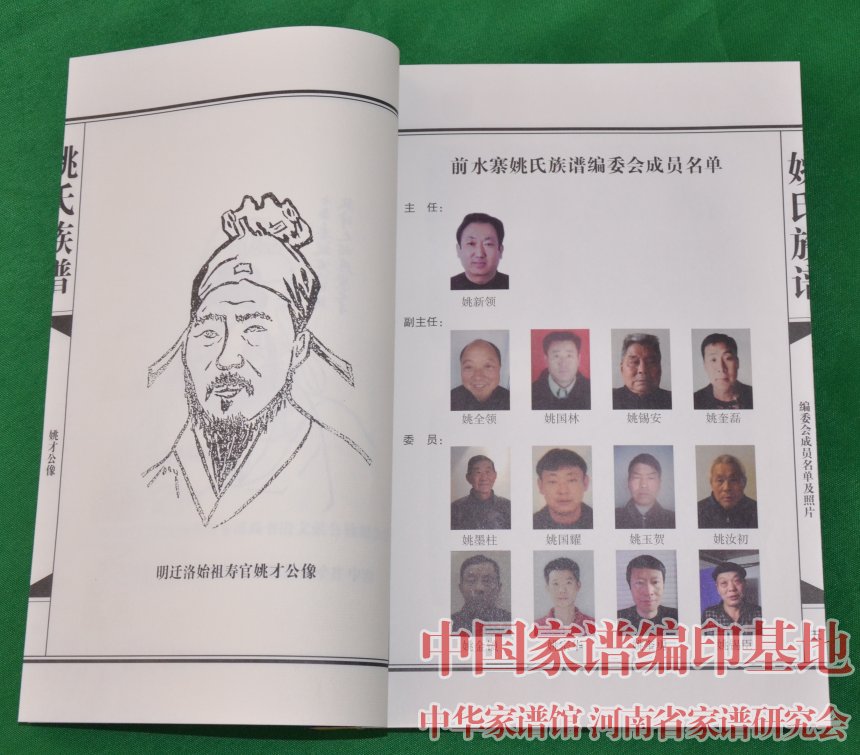 姚氏族谱
姚才公像
明迁洛始祖寿官姚才公像
前水寨姚氏族谱编委会成员名单
主 任：
姚新领
副主任：
姚全领 姚国林 姚锡安 姚奎磊
委 员：
姚墨柱 姚国耀 姚玉贺 姚汝初
姚氏族谱
编委会成员名单及照片
中国家谱编印基地
中华家谱馆 河南省家谱研究会